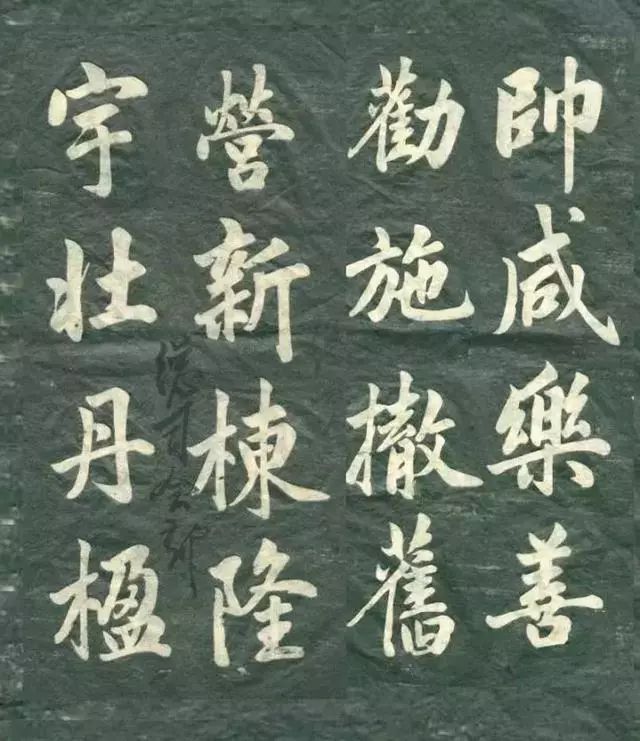 帥咸樂善
勸施撤舊
營新棟隆
宇壯丹楹